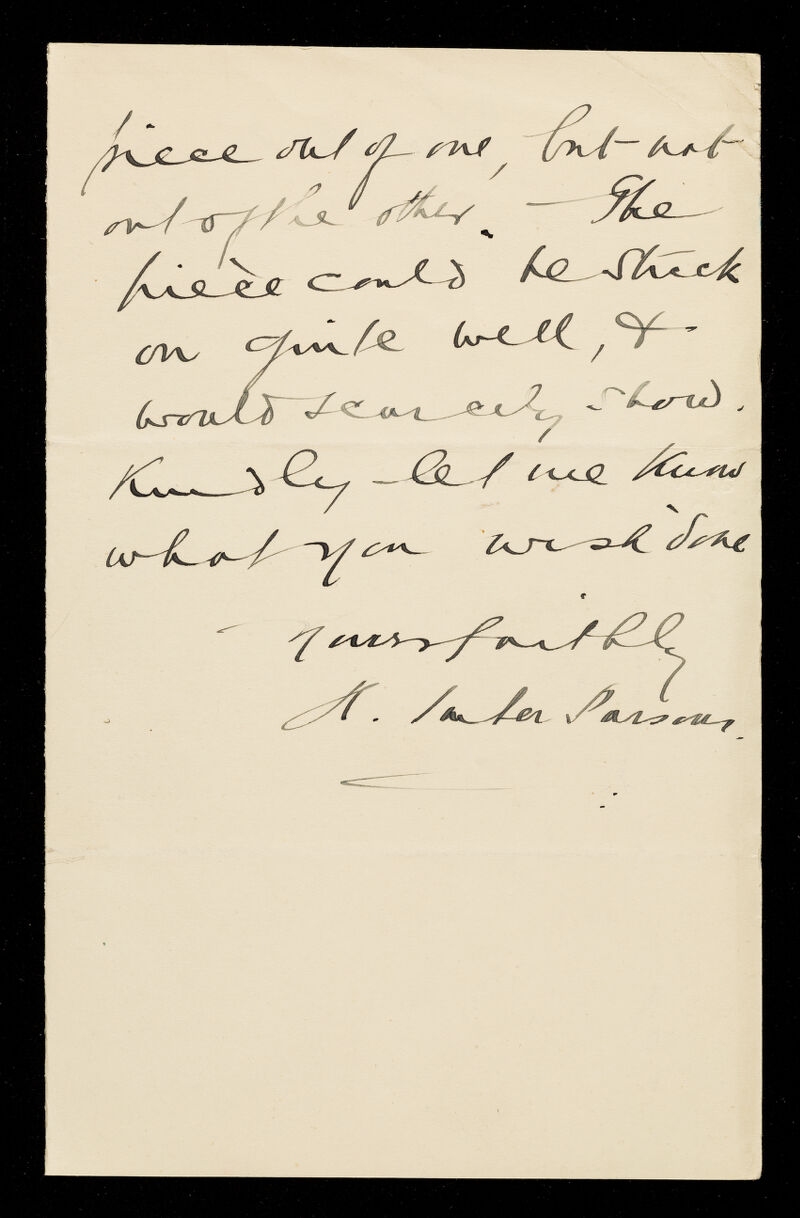 piece out of one, but not
out of the other. - The
piece could be stuck
on quite well, &
would scarcely show.
Kindly let me know
what you wish done
Yours faithfly
H. Parsons.